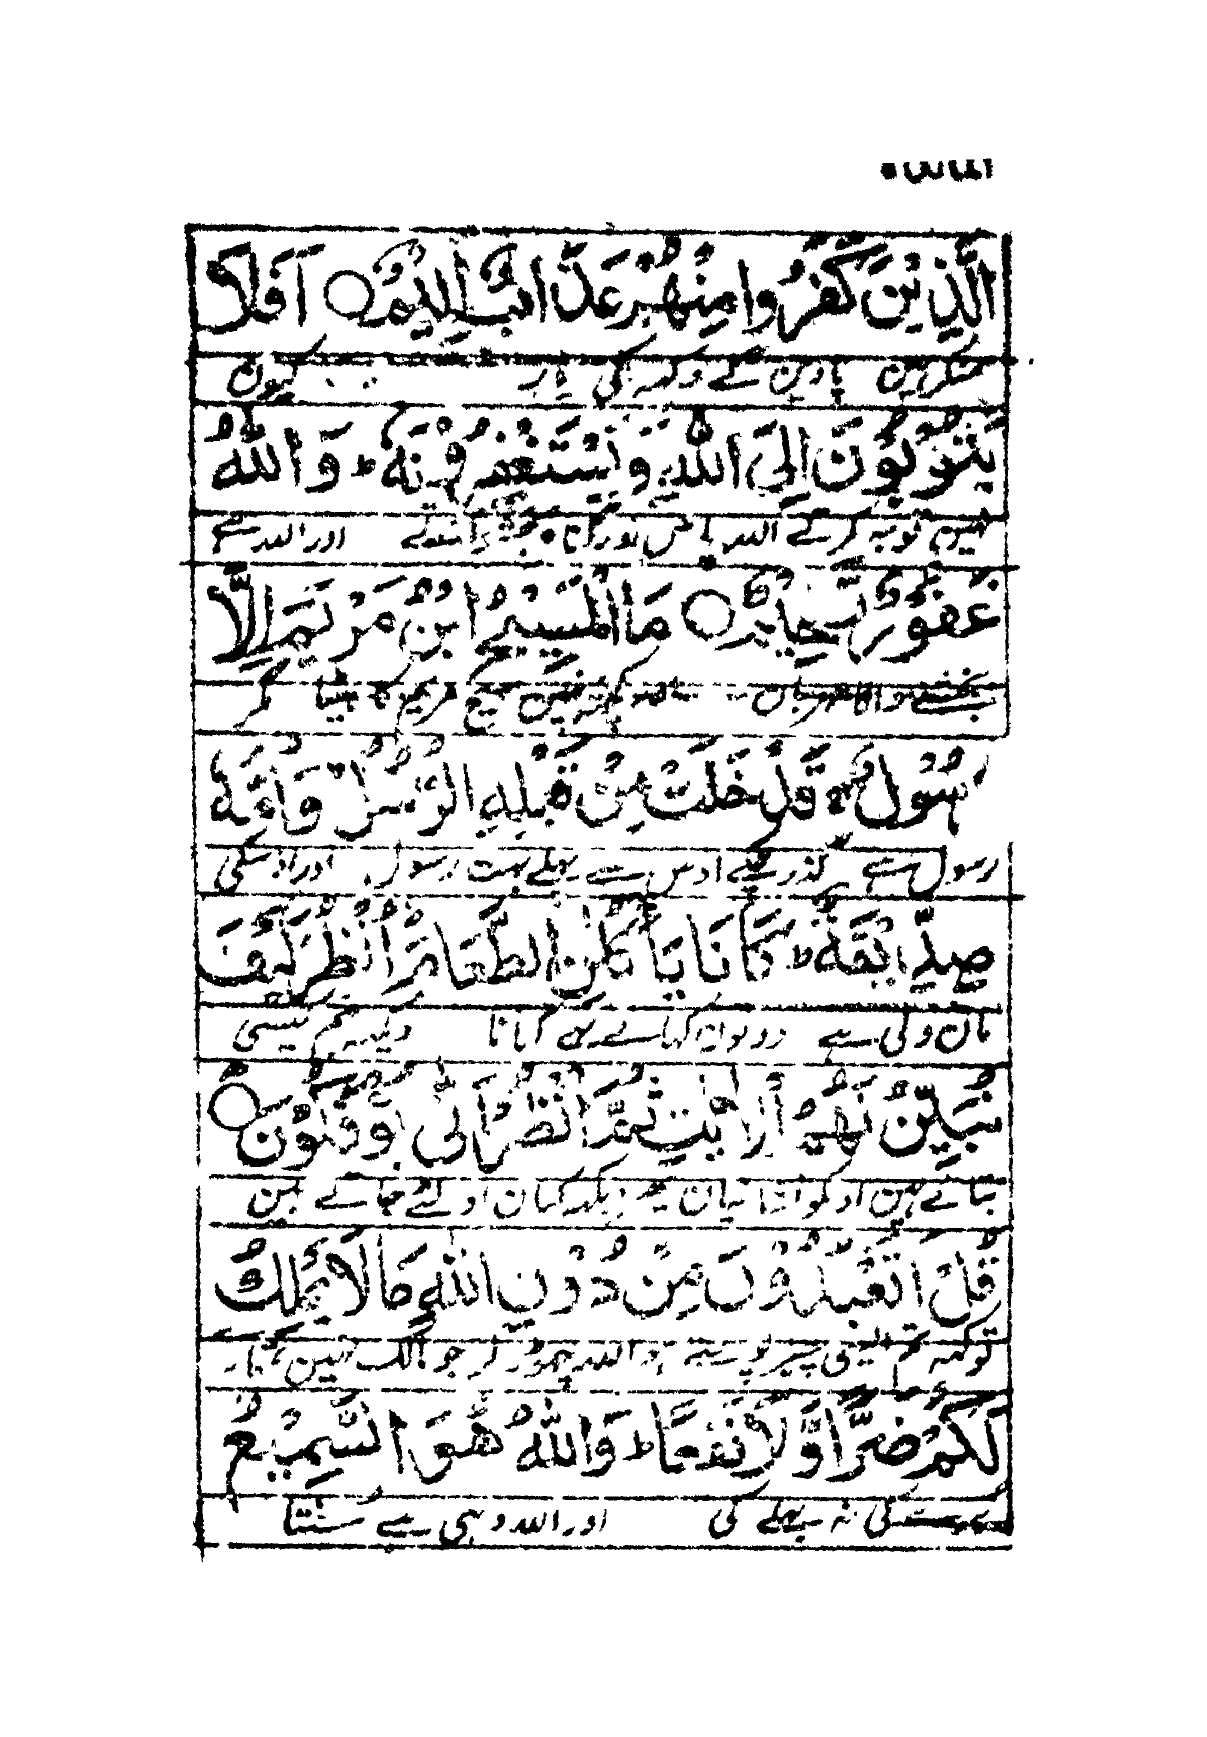 الَّذِيْنَ كَفَرُوْا مِنْهُمْ عَذَابٌ اَلِيْمٌ ○ اَفَلَا
منکر ہین پاوین گے دکھہ کی مار کیون
يَتُوْبُوْنَ اِلَى اللّٰهِ وَيَسْتَغْفِرُوْنَهٗ ط وَاللّٰهُ
نہین توبہ کرتے اللہ پاس اور گناہ بخشواتے اور اللہ ہے
غَفُوْرٌ رَّحِيْمٌ ○ مَا الْمَسِيْحُ ابْنُ مَرْيَمَ اِلَّا
بخشنے والا مہربان کچھہ نہین مسیح مریم کا بیٹا مگر
رَسُوْلٌ ج قَدْ خَلَتْ مِنْ قَبْلِهِ الرُّسُلُ وَاُمُّهٗ
رسول ہے گذر چکے اوس سے پہلے بہت رسول اور اوسکی
صِدِّيْقَةٌ ط كَانَا يَاْكُلٰنِ الطَّعَامَ اُنْظُرْ كَيْفَ
مان ولی ہے دونون کھاتے تھے کھانا دیکہہ ہم کیسی
نُبَيِّنُ لَهُمُ الْاٰيٰتِ ثُمَّ انْظُرْ اَنّٰى يُؤْفَكُوْنَ ○
بتاتے ہین اونکو نشانیان پھر دیکہہ کہان اولٹے جاتے ہین
قُلْ اَتَعْبُدُوْنَ مِنْ دُوْنِ اللّٰهِ مَا لَا يَمْلِكُ
تو کہہ تم ایسی چیز پوجتے ہو اللہ چھوڑ کر جو مالک نہین تمہارے
لَكُمْ ضَرًّا وَّلَا نَفْعًا ط وَاللّٰهُ هُوَ السَّمِيْعُ
کی نہ بھلے کی اور اللہ وہی ہے سنتا